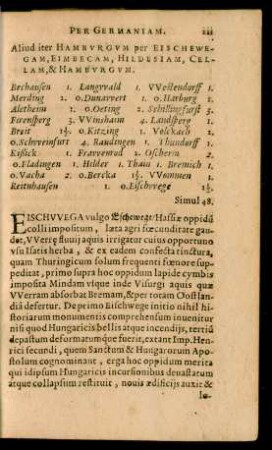 PER GERMANIAM.
Aliud iter HAMBVRGVM per EISCHEWE-
GAM, EIMBECAM, HILDESIAM, CEL-
LAM, & HAMBVRGVM.
Bechausen 1. Langvvald 1. VVestendorff 1.
Merding 1. o.Dunavvert 1. o.Harburg 1.
Aletheim 1. o.Oeting 2. Schillingfurst 3.
Ferensperg 3. VVinshaim 4. Landsperg 1.
Breit 1½. o.Kitzing 1. Volckach 1.
o.Schvveinfurt 4. Raudingen 1. Thundorff 1.
Kisick 1. Fravvenrad 2. Oschern 2.
o.Fladingen 1. Hilders 1. Thain 1. Bremich 1.
o.Vacha 2. o.Bercka 1½. VVommen 1.
Reitnhausen 1. o.Eischvvege 1½.
Simul 48.
EISCHVVEGA vulgo Eschewege/ Hassiæ oppidū
colli impositum, læta agri fœcunditate gau-
det, VVerræ fluuij aquis irrigatur cuius opportuno
vsu Isatis herba, & ex eadem confecta tinctura,
quam Thuringicum solum frequenti fœnore sup-
peditat, primo supra hoc oppidum lapide cymbis
imposita Mindam vsque inde Visurgi aquis quæ
VVerram absorbat Bremam, & per totam Oostlan-
dii desertur. De primo Eischwege initio nihil hi-
storiarum monumentis comprehensum inuenitur
nisi quod Hungaricis bellis atque incendijs, tertiū
depastum deformatumque fuerit, extant Imp. Hen-
rici secundi, quem Sanctum & Hungarorum Apo-
stolum cognominant, erga hoc oppidum merita
qui idipsum Hungaricis incursionibus deuastatum
atque collapsum restituit, nouis ædificijs auxit &